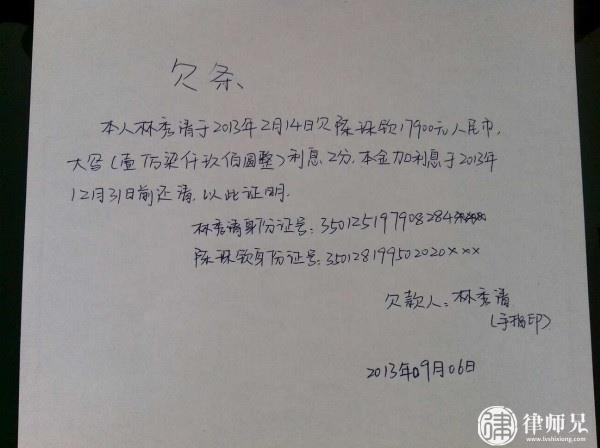 欠条
本人林秀清于2013年2月14日欠陈珠钦17900元人民币,
大写(壹万柒仟玖佰圆整)利息2分,本金加利息于2013年
12月31日前还清,以此证明.
林秀清身份证号:350125197908284
陈珠钦身份证号:350128199502020×××
欠款人:林秀清
(手指印)
2013年09月06日
律师兄
www.lvshixiong.com